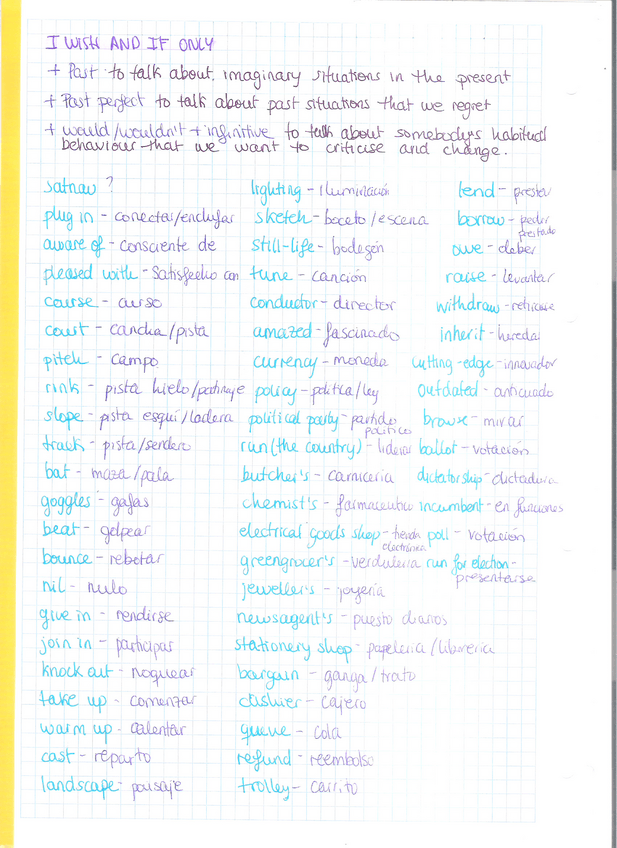 I WISH AND IF ONLY
+ Past to talk about imaginary situations in the present
+ Past perfect to talk about past situations that we regret
+ would/wouldn't + infinitive to talk about somebody's habitual
behaviour that we want to criticise and change.
satnav ?
plug in - conectar/enchufar
aware of - consciente de
pleased with - Satisfecho con
course - curso
court - cancha/pista
pitch - campo
rink - pista hielo/patinaje
slope - pista esquí/ladera
track - pista/sendero
bat - maza/pala
goggles - gafas
beat - golpear
bounce - rebotar
nil - nulo
give in - rendirse
join in - participar
knock out - noquear
take up - comenzar
warm up - calentar
cast - reparto
landscape - paisaje
lighting - iluminación
sketch - boceto/escena
still-life - bodegón
tune - canción
conductor - director
amazed - fascinado
currency - moneda
policy - política/ley
political party - partido político
run (the country) - liderar
butcher's - carnicería
chemist's - farmaceutico
electrical goods shop - tienda electrónica
greengrocer's - verdulería
jeweller's - joyería
newsagent's - puesto diarios
stationery shop - papelería/librería
bargain - ganga/trato
cashier - cajero
queue - cola
refund - reembolso
trolley - carrito
lend - prestar
borrow - pedir prestado
owe - deber
raise - levantar
withdraw - retirarse
inherit - heredar
cutting-edge - innovador
outdated - anticuado
browse - mirar
ballot - votación
dictatorship - dictadura
incumbent - en funciones
poll - votación
run for election - presentarse